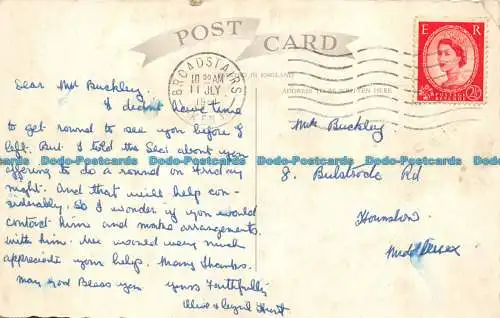 POST CARD
E R
BROADSTAIRS
10 30 AM
11 JLY
IN ENGLAND
ADDRESS TO BE WRITTEN HERE
POSTAGE REVENUE
2½D
Dear Mr Buckley
I didn't have time
to get round to see you before I
left. But I told the Sec: about you
offering to do a round on Friday
night. And that will help con-
siderably. So I wonder if you would
contact him and make arrangements
with him. We would very much
appreciate your help. Many thanks.
May God Bless you yours Faithfully
Mr Buckley
8. Bulstrode Rd
Hounslow
Middlesex
Dodo-Postcards Dodo-Postcards Dodo-Postcards Dodo-Postcards
Dodo-Postcards Dodo-Postcards Dodo-Postcards Dodo-Postcards